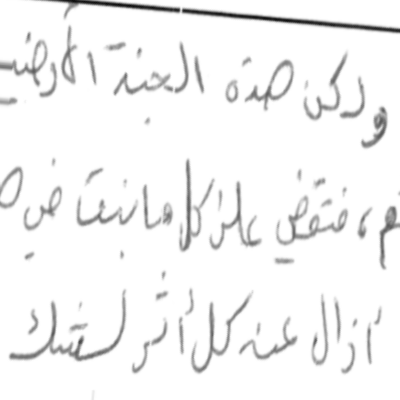 ولكن هذه الجنة الأرضية
م، فتقضي على كل ما نبت في
أزال عنه كل أثر